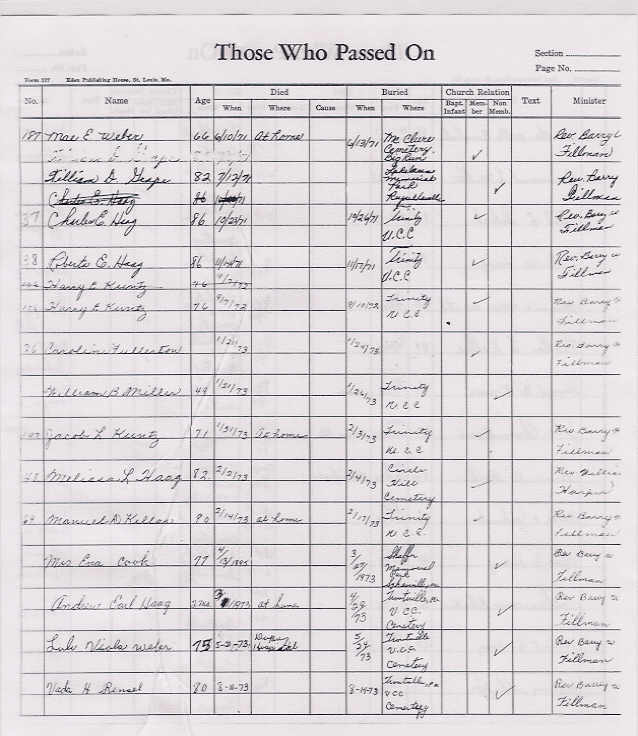 Those Who Passed On
Section
Page No.
Form 237 Eden Publishing House, St. Louis, Mo.
No. Name Age Died Buried Church Relation Text Minister
When Where Cause When Where Bapt. Infant Member Non Memb.
187 Mae E Weber 66 6/10/71 At home 6/13/71 Mc Clure Cemetery Big Run Rev. Barry Fillman
82 7/12/71 Memorial Park Rev. Barry Fillman
Charles E. Haag 86
37 Charles E. Haag 86 10/23/71 10/26/71 Trinity U.C.C Rev. Barry Fillman
38 Roberta E. Haag 86 11/14/71 11/17/71 Trinity U.C.C Rev. Barry Fillman
Harry E Kuntz 76
Harry E Kuntz 76 9/7/72 9/10/72 Trinity U.C.C Rev Barry Fillman
26 Carolin Fullerton 1/21/73 1/24/73 Rev. Barry Fillman
William B Miller 49 1/21/73 1/26/73 Trinity U.C.C
Jacob L Kuntz 71 1/31/73 at home 2/3/73 Trinity U.C.C Rev Barry Fillman
Melissa L Haag 82 2/2/73 2/4/73 Circle Hill Cemetery Rev William Harper
Manuel A Keller 80 2/14/73 at home 2/17/73 Trinity U.C.C. Rev Barry Fillman
Mrs Eva Cook 77 3/27/1973 Memorial Park Rev Barry Fillman
Andrew Earl Haag 1973 at home 4/29/73 U.C.C. Cemetery Rev Barry Fillman
Lulu Viola Weber 75 5-21-73 Hospital 5/24/73 U.C.C Cemetery Rev Barry Fillman
Veda H Rensel 80 8-16-73 8-19-73 UCC Cemetery Rev Barry Fillman